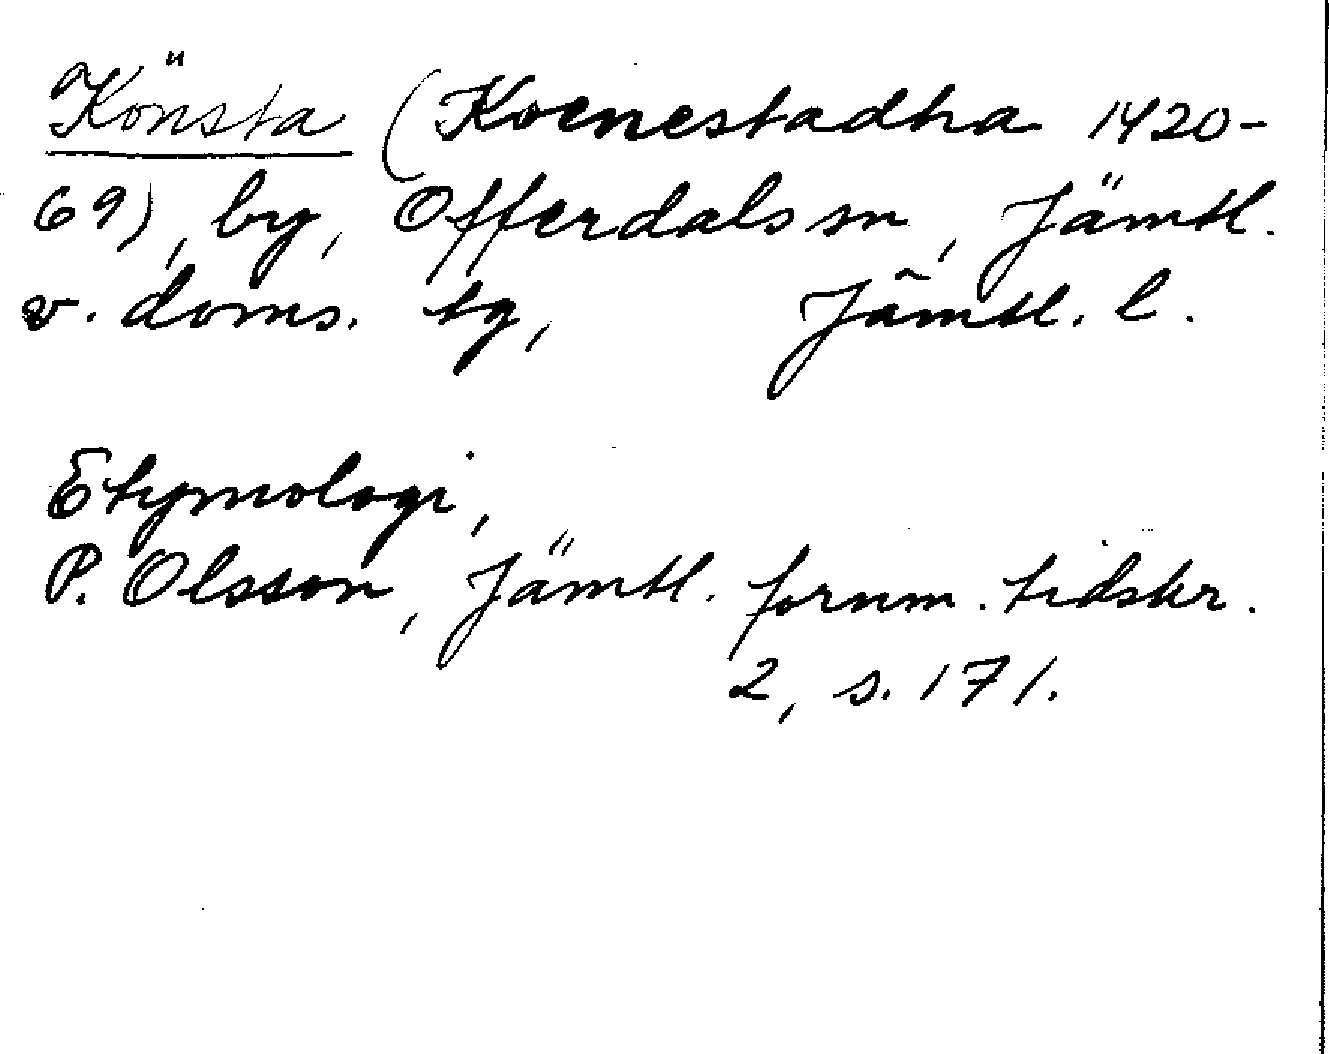 Könsta (Koenestadha 1420-
69), by, Offerdals sn, Jämtl.
v. doms. tg, Jämtl. l.
Etymologi,
P. Olsson, Jämtl. fornm. tidskr.
2, s. 171.